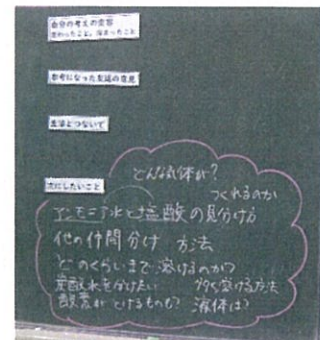 自分の考えの変容
変わったこと、深まったこと
参考になった友達の意見
生活とつないで
次にしたいこと
どんな気体が?
つくれるのか
アンモニア水と塩酸の見分け方
他の仲間分け 方法
どのくらいまで溶けるのか?
炭酸水を 多く溶ける方法
酸素がとけるものも? 液体は?